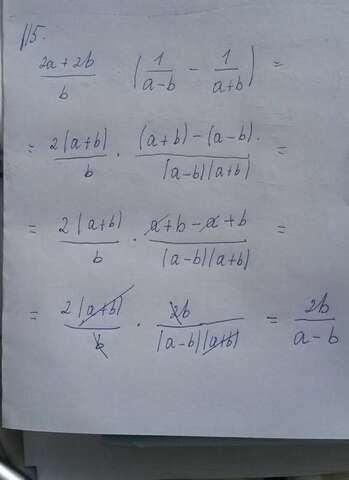 №5.
(2a + 2b)/b (1/(a-b) - 1/(a+b)) =
= 2(a+b)/b · ((a+b) - (a-b))/((a-b)(a+b)) =
= 2(a+b)/b · (a+b-a+b)/((a-b)(a+b)) =
= 2(a+b)/b · 2b/((a-b)(a+b)) = 2b/(a-b)